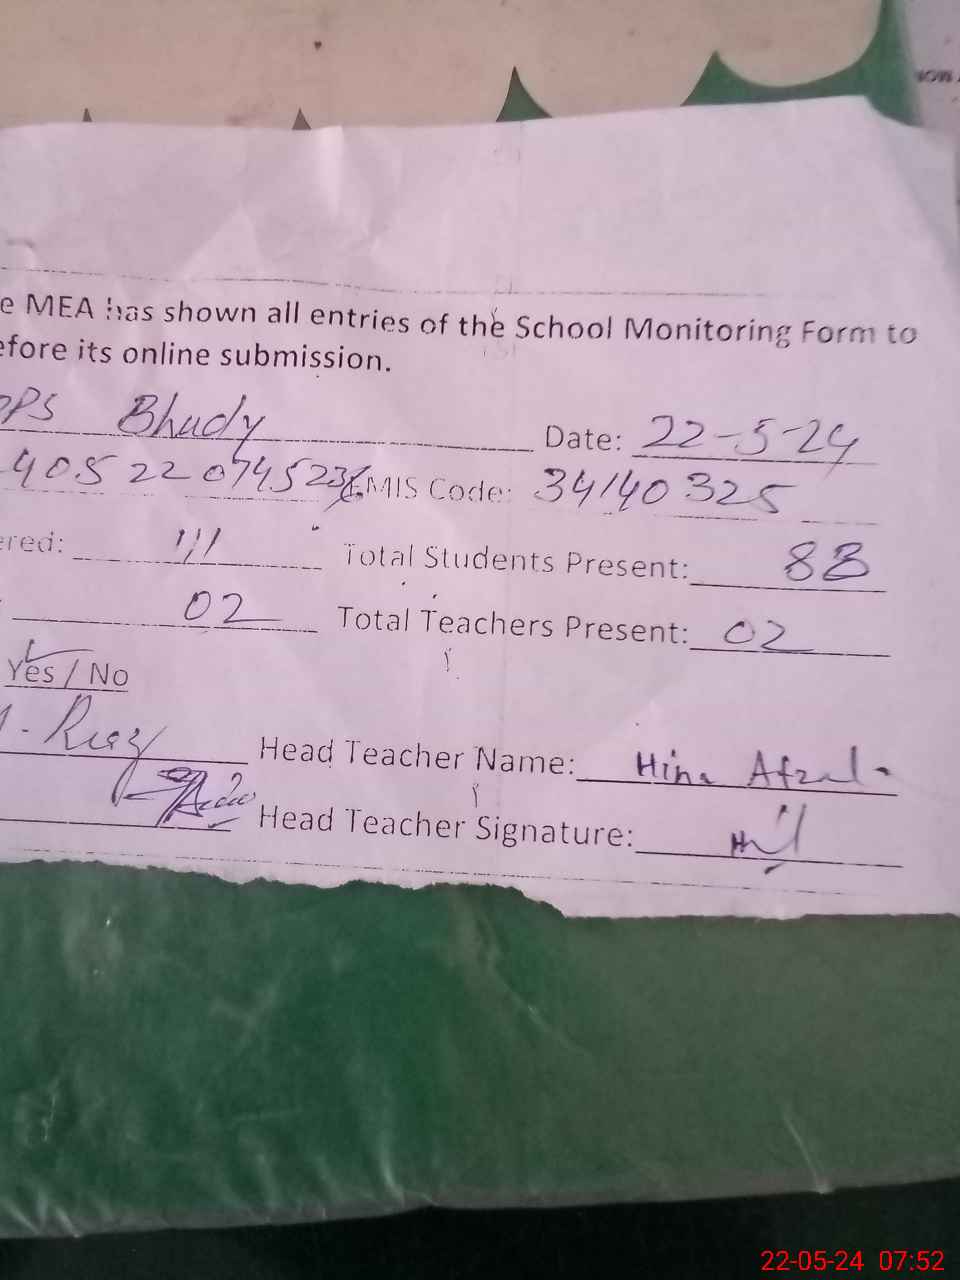 e MEA has shown all entries of the School Monitoring Form to
efore its online submission.
PS Bhudy Date: 22-5-24
4052207452 EMIS Code: 34140325
ered: 111 Total Students Present: 83
02 Total Teachers Present: 02
Yes / No
Riaz Head Teacher Name: Hina Afzal
Head Teacher Signature:
22-05-24 07:52